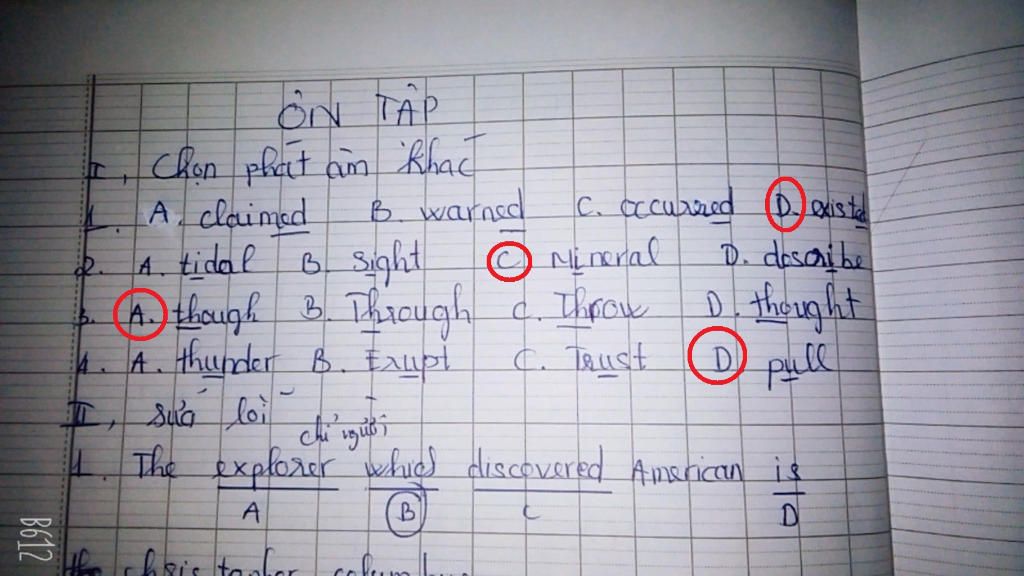 ÔN TẬP
I, Chọn phát âm khác
1. A. claimed B. warned C. occurred D. existed
2. A. tidal B. sight C. Mineral D. describe
3. A. though B. Through C. Throw D. thought
4. A. thunder B. Erupt C. Trust D pull
II, sửa lỗi
chỉ người
1. The explorer which discovered American is
A B C D
the christopher
B612